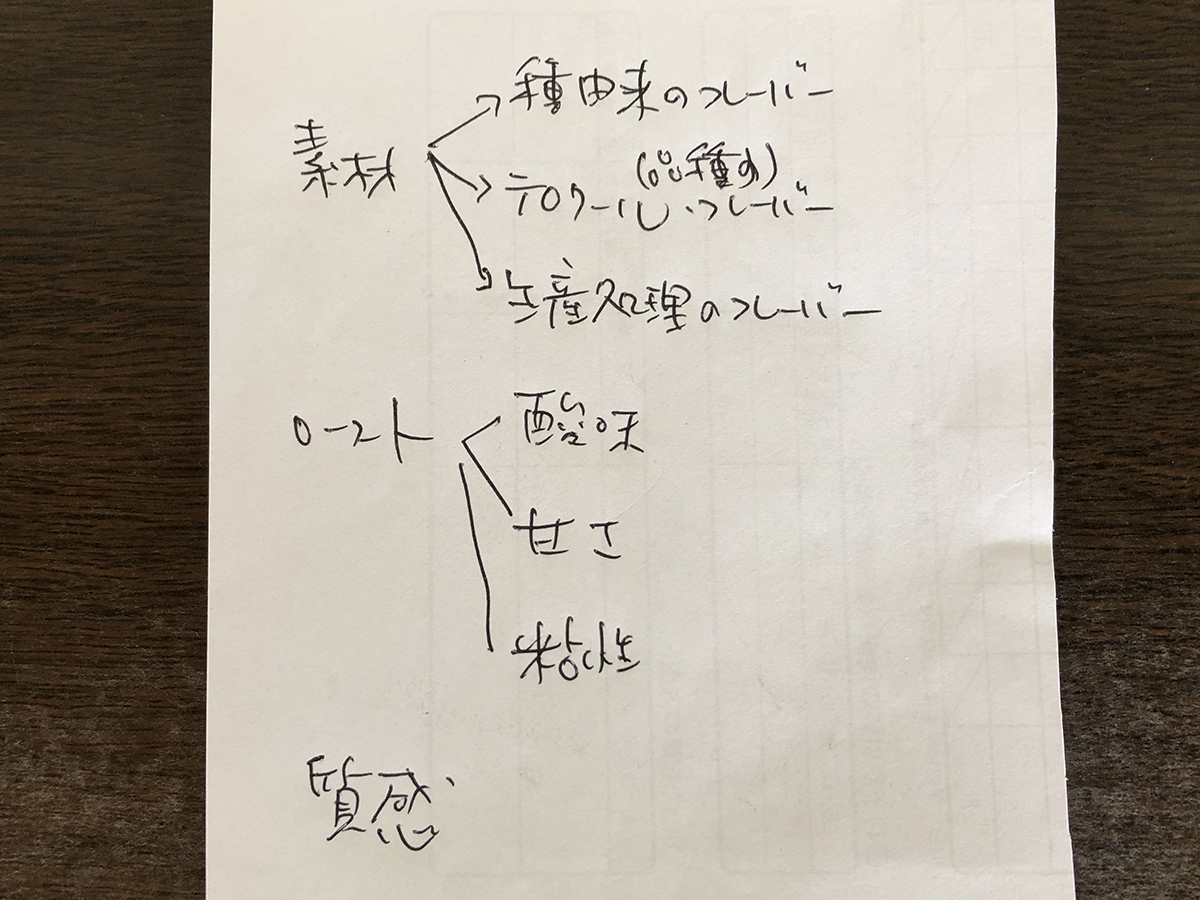 種由来のフレーバー
素材
(品種の)
テロワール、フレーバー
生産処理のフレーバー
ロースト
酸味
甘さ
粘性
質感